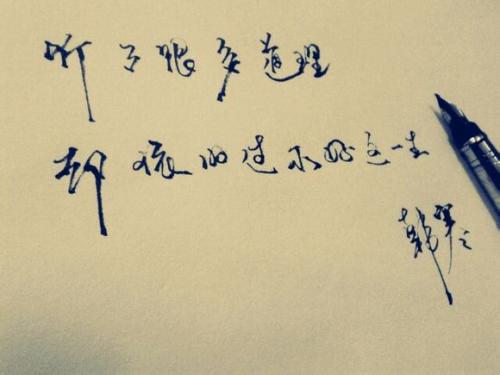 听了很多道理
却依旧过不好这一生
韩